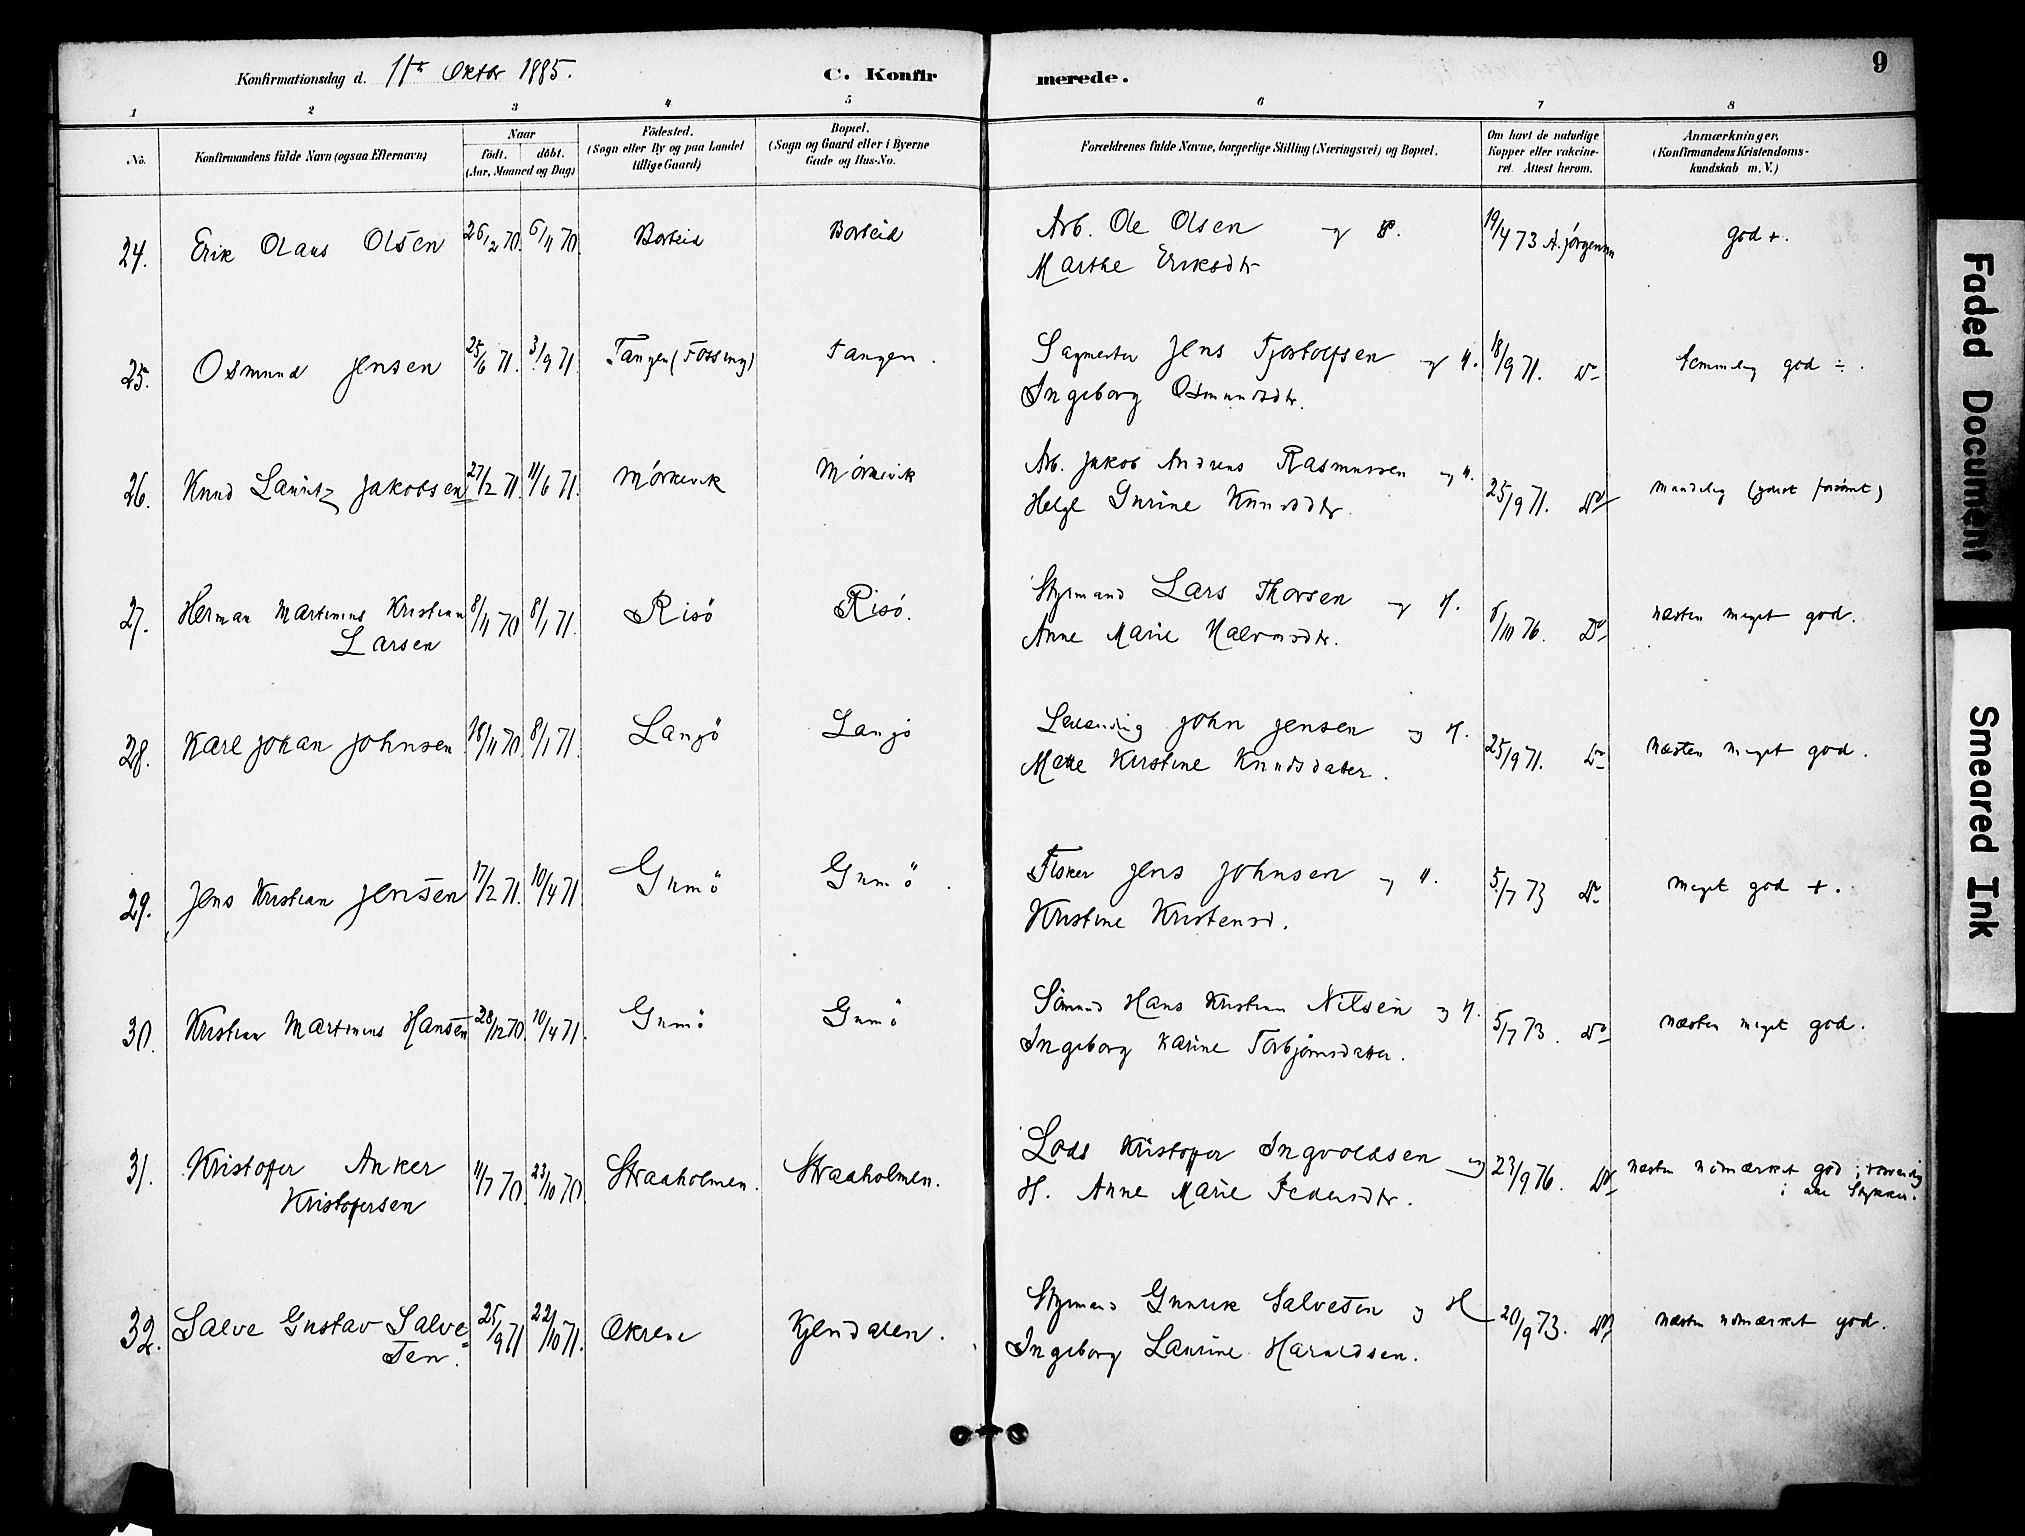 Konfirmationsdag d. 11te Oktbr 1885.
C. Konfirmerede.
9
1 2 3 4 5 6 7 8
No.
Konfirmandens fulde Navn (ogsaa Efternavn)
Naar
födt. döbt.
(Aar, Maaned og Dag)
Födested.
(Sogn eller By og paa Landet
tillige Gaard)
Bopæl.
(Sogn og Gaard eller i Byerne
Gade og Hus-No.
Forældrenes fulde Navne, borgerlige Stilling (Næringsvei) og Bopæl.
Om havt de naturlige
Kopper eller vakcine-
ret. Attest herom.
Anmærkninger.
(Konfirmandens Kristendoms-
kundskab m. V.)
24. Erik Olaus Olsen 26/2 70. 6/11 70. Borteid Borteid Arb. Ole Olsen og H. 19/4 73 A. Jörgensen god +.
Marthe Eriksdtr
25. Osmund Jensen 25/6 71. 3/9 71. Tangen (Fossing) Tangen. Sagmester Jens Tjostolfsen og H. 18/9 71. Do temmelig god ÷.
Ingeborg Osmundsdtr.
26. Knud Lauritz Jakobsen 27/2 71. 11/6 71. Mörkevik Mörkevik Arb. Jakob Andreas Rasmussen og H. 25/9 71. Do maadelig (ydest forsömt)
Helge Gurine Knudsdtr.
27. Herman Martinius Kristian 8/11 70 8/1 71. Risö Risö. Styrmand Lars Thorsen og H. 6/10 76. Do næsten meget god.
Larsen Anne Marie Halvorsdtr.
28. Karl Johan Johnsen 18/11 70. 8/1 71. Langö Langö John Jensen og H. 25/9 71. Do næsten meget god.
Mette Kirstine Knudsdatter.
29. Jens Kristian Jensen 17/2 71. 10/4 71. Gumö Gumö. Fisker Jens Johnsen og H. 5/7 73 Do meget god +.
Kristine Kristensd.
30. Kristian Martinius Hansen 28/12 70. 10/4 71. Gumö Gumö Sömand Hans Kristian Nilsen og H. 5/7 73. Do næsten meget god.
Ingeborg Karine Torbjörnsdatter.
31. Kristofer Anker 11/7 70. 23/10 70 Straaholmen. Straaholmen. Lods Kristoffer Ingvoldsen og 23/9 76. Do næsten udmærket god;
Kristofersen H. Anne Marie Pedersdtr. i alle Stykker.
32. Salve Gustav Salve= 25/9 71 22/10 71. Økrene Kjendalen. Styrmand Gunerik Salvesen og H 20/9 73. Do næsten udmærket god.
sen. Ingeborg Laurine Haraldsen.
Faded Document
Smeared Ink